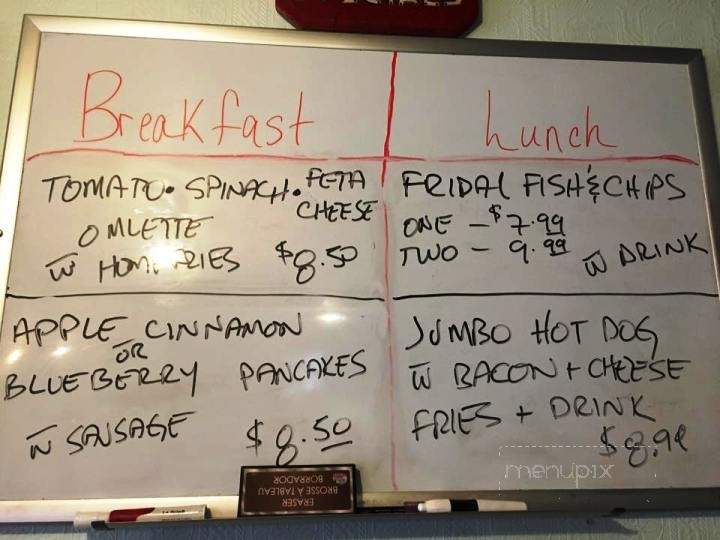 Breakfast
TOMATO • SPINACH • FETA
CHEESE
OMLETTE
w HOMEFRIES $8.50
APPLE CINNAMON
OR
BLUEBERRY PANCAKES
w SAUSAGE $8.50
Lunch
FRIDAY FISH & CHIPS
ONE - $7.99
TWO - 9.99 w DRINK
JUMBO HOT DOG
w BACON + CHEESE
FRIES + DRINK
$8.99
menupix
ERASER
BROSSE À TABLEAU
BORRADOR